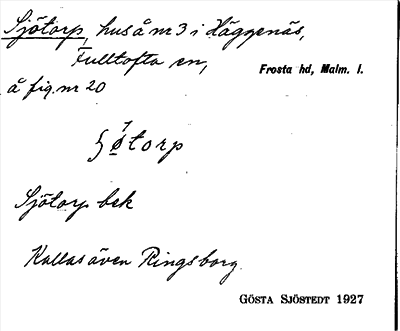 Sjötorp, hus å nr 3 i Häggenäs,
Fulltofta sn,
Frosta hd, Malm. l.
å fig. nr 20
Sjötorp bek
Kallas även Ringsborg.
GÖSTA SJÖSTEDT 1927